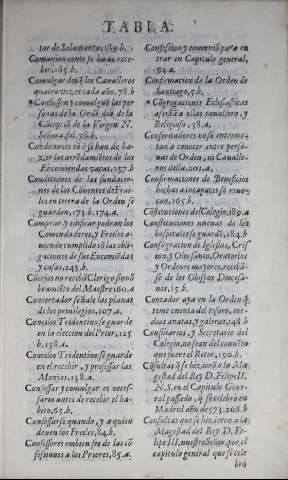 TABLA.
tor de Salamanca, 180.b.
Comunion como se ha de rece-
ber, 185.b.
Comulgar deuẽ los Caualleros
quatro vezes cada año, 78.b
* Cõfiessen y comulguẽ las per
sonas de la Ordẽ dia de la
Cõcepciõ de la Virgen N.
Señora, fol. 78.b.
Condiciones cõ q̃ se han de ha-
zir los arrẽdamiẽtos de las
Encomiendas vacas, 157.b
Condiciones de las fundacio-
nes de los Cõuentos de Frai-
les en tierra de la Orden se
guarden, 173.b. 174.a.
Comprar, y edificar podran los
Comendadores, y Freiles a-
uiendo cumplido cõ las obli-
gaciones de sus Encomiẽdas
y casas, 145.b.
Cõcejos no recibã Clerigo sin nõ
bramiẽto del Maestre, 160.a
Concertador señale las planas
de los priuilegios, 107.a.
Concilio Tridentino se guarde
en la eleccion del Prior, 125
b. 138.a.
Concilio Tridentino se guarde
en el recebir, y professar las
Monjas, 138.a.
Confessar y comulgar es neces-
sario antes de recebir el ha-
bito, 65.b.
Confessarse quando, y a quien
deuen los Freiles, 84.b.
Confessores embien fee de las cõ
fessiones a los Priores, 85.a.
Confession y comuniõ para en
trar en Capitulo general,
54.a.
Confirmacion de la Orden de
Santiago, 5.b.
* Cõgregaciones Eclesiasticas
assista a ellas cauallero, y
Religioso, 38.a.
Conseruadores no se entreme-
tan a conocer entre perso-
nas de Orden, ni Caualle-
ros della, 201.a.
Confirmaciones de Beneficios
hechas a incapaces, se reuo-
can, 165.b.
Cõstituciones del Colegio, 189.a
Constituciones nueuas de los
hospitales se guardẽ, 184.b
Consagracion de Iglesias, Cris
ma, y Oleo santo, Oratorios
y Ordenes mayores, recibã-
se de los Obispos Diocesa-
nos, 15.b.
Contador aya en la Ordẽ, q̃
tome cuenta del tesoro, me-
dias anatas, y galeras, 198.b
Consiliarios, y Secretario del
Colegio, no sean del conuẽto
que fuere el Retor, 150.b.
Cõsultas q̃ se hizierõ a la Ma-
gestad del Rey D. Felipe II.
N. S. en el Capitulo Gene-
ral passado, q̃ se celebrò en
Madrid año de 573. 206.b
Cõsultas que se hizieron a la
Magestad del Rey D. Fe-
lipe III. nuestro Señor, por el
capitulo general que se cele
bra